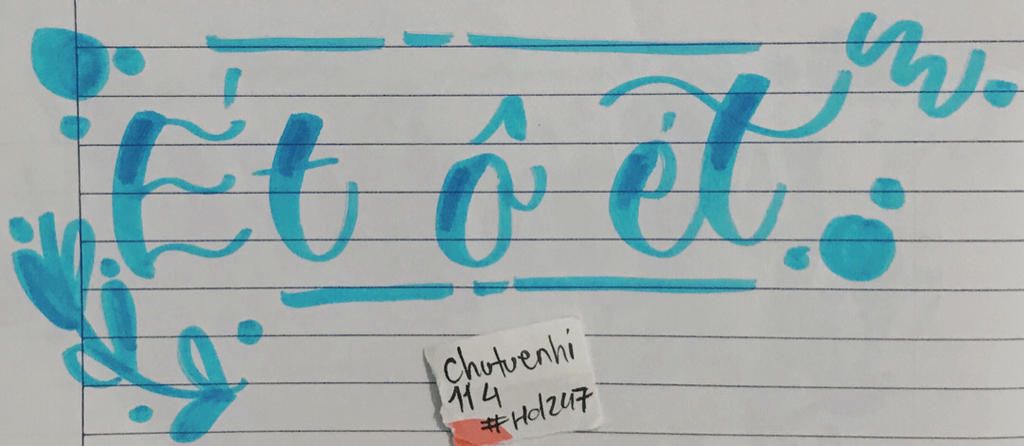 Ét ô ét
Chutuenhi
114
#Hd247